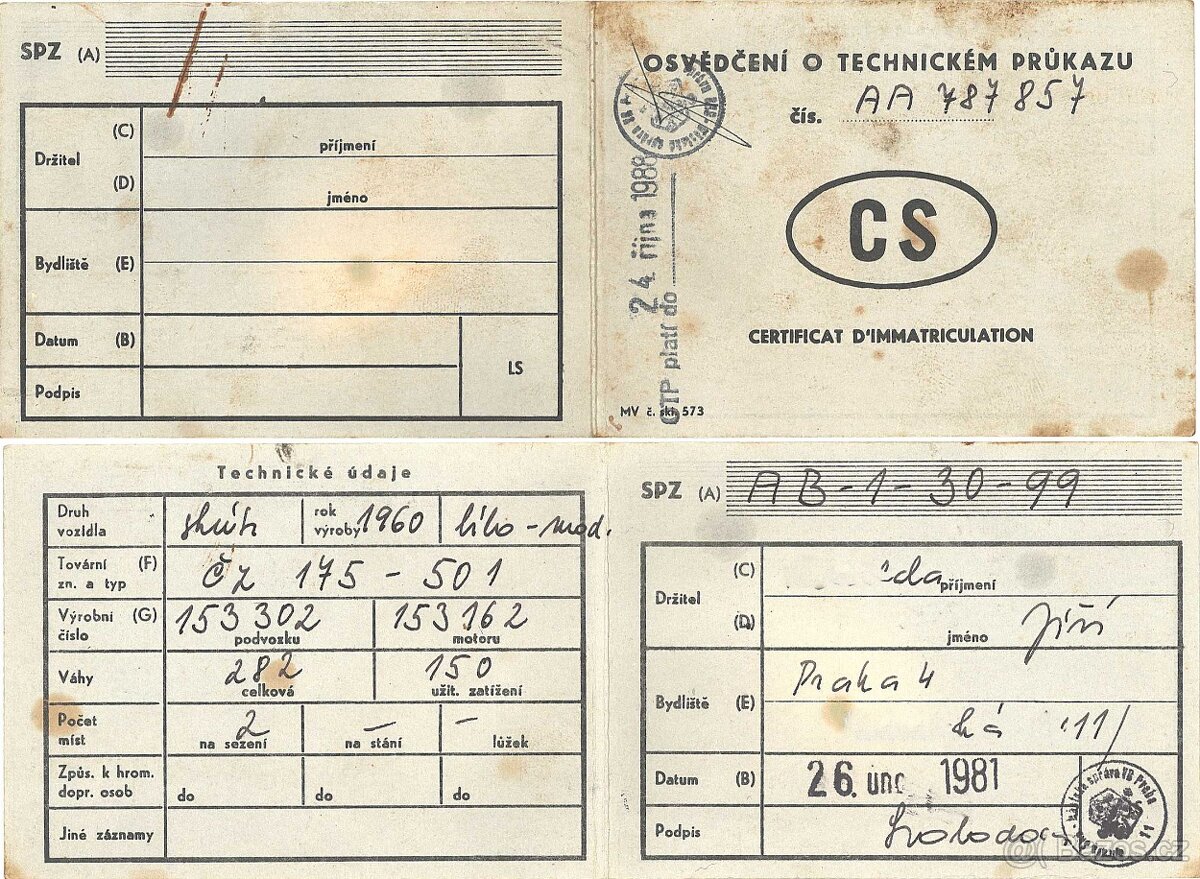 SPZ (A)
Držitel
(C)
příjmení
(D)
jméno
Bydliště (E)
Datum (B)
LS
Podpis
OSVĚDČENÍ O TECHNICKÉM PRŮKAZU
čís. AA 787 857
CS
CERTIFICAT D'IMMATRICULATION
24. října 1988
OTP platí do
MV č. skl. 573
Technické údaje
Druh vozidla
skútr
rok výroby 1960
bílo - mod.
Tovární zn. a typ (F)
ČZ 175 - 501
Výrobní číslo (G)
153302
podvozku
153162
motoru
Váhy
282
celková
150
užit. zatížení
Počet míst
2
na sezení
–
na stání
–
lůžek
Způs. k hrom. dopr. osob
do
do
do
Jiné záznamy
SPZ (A) AB-1-30-99
Držitel
(C)
da
příjmení
(D)
jméno Jiří
Bydliště (E)
Praha 4
ká 11/
Datum (B)
26. úno 1981
Podpis
Svoboda